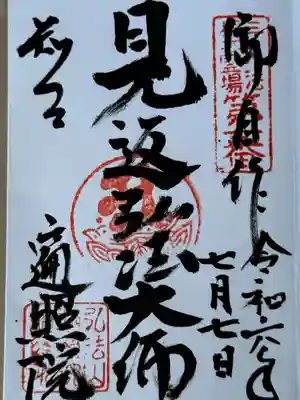 御自作
令和六年
七月七日
見返弘法大師
知立
遍照院